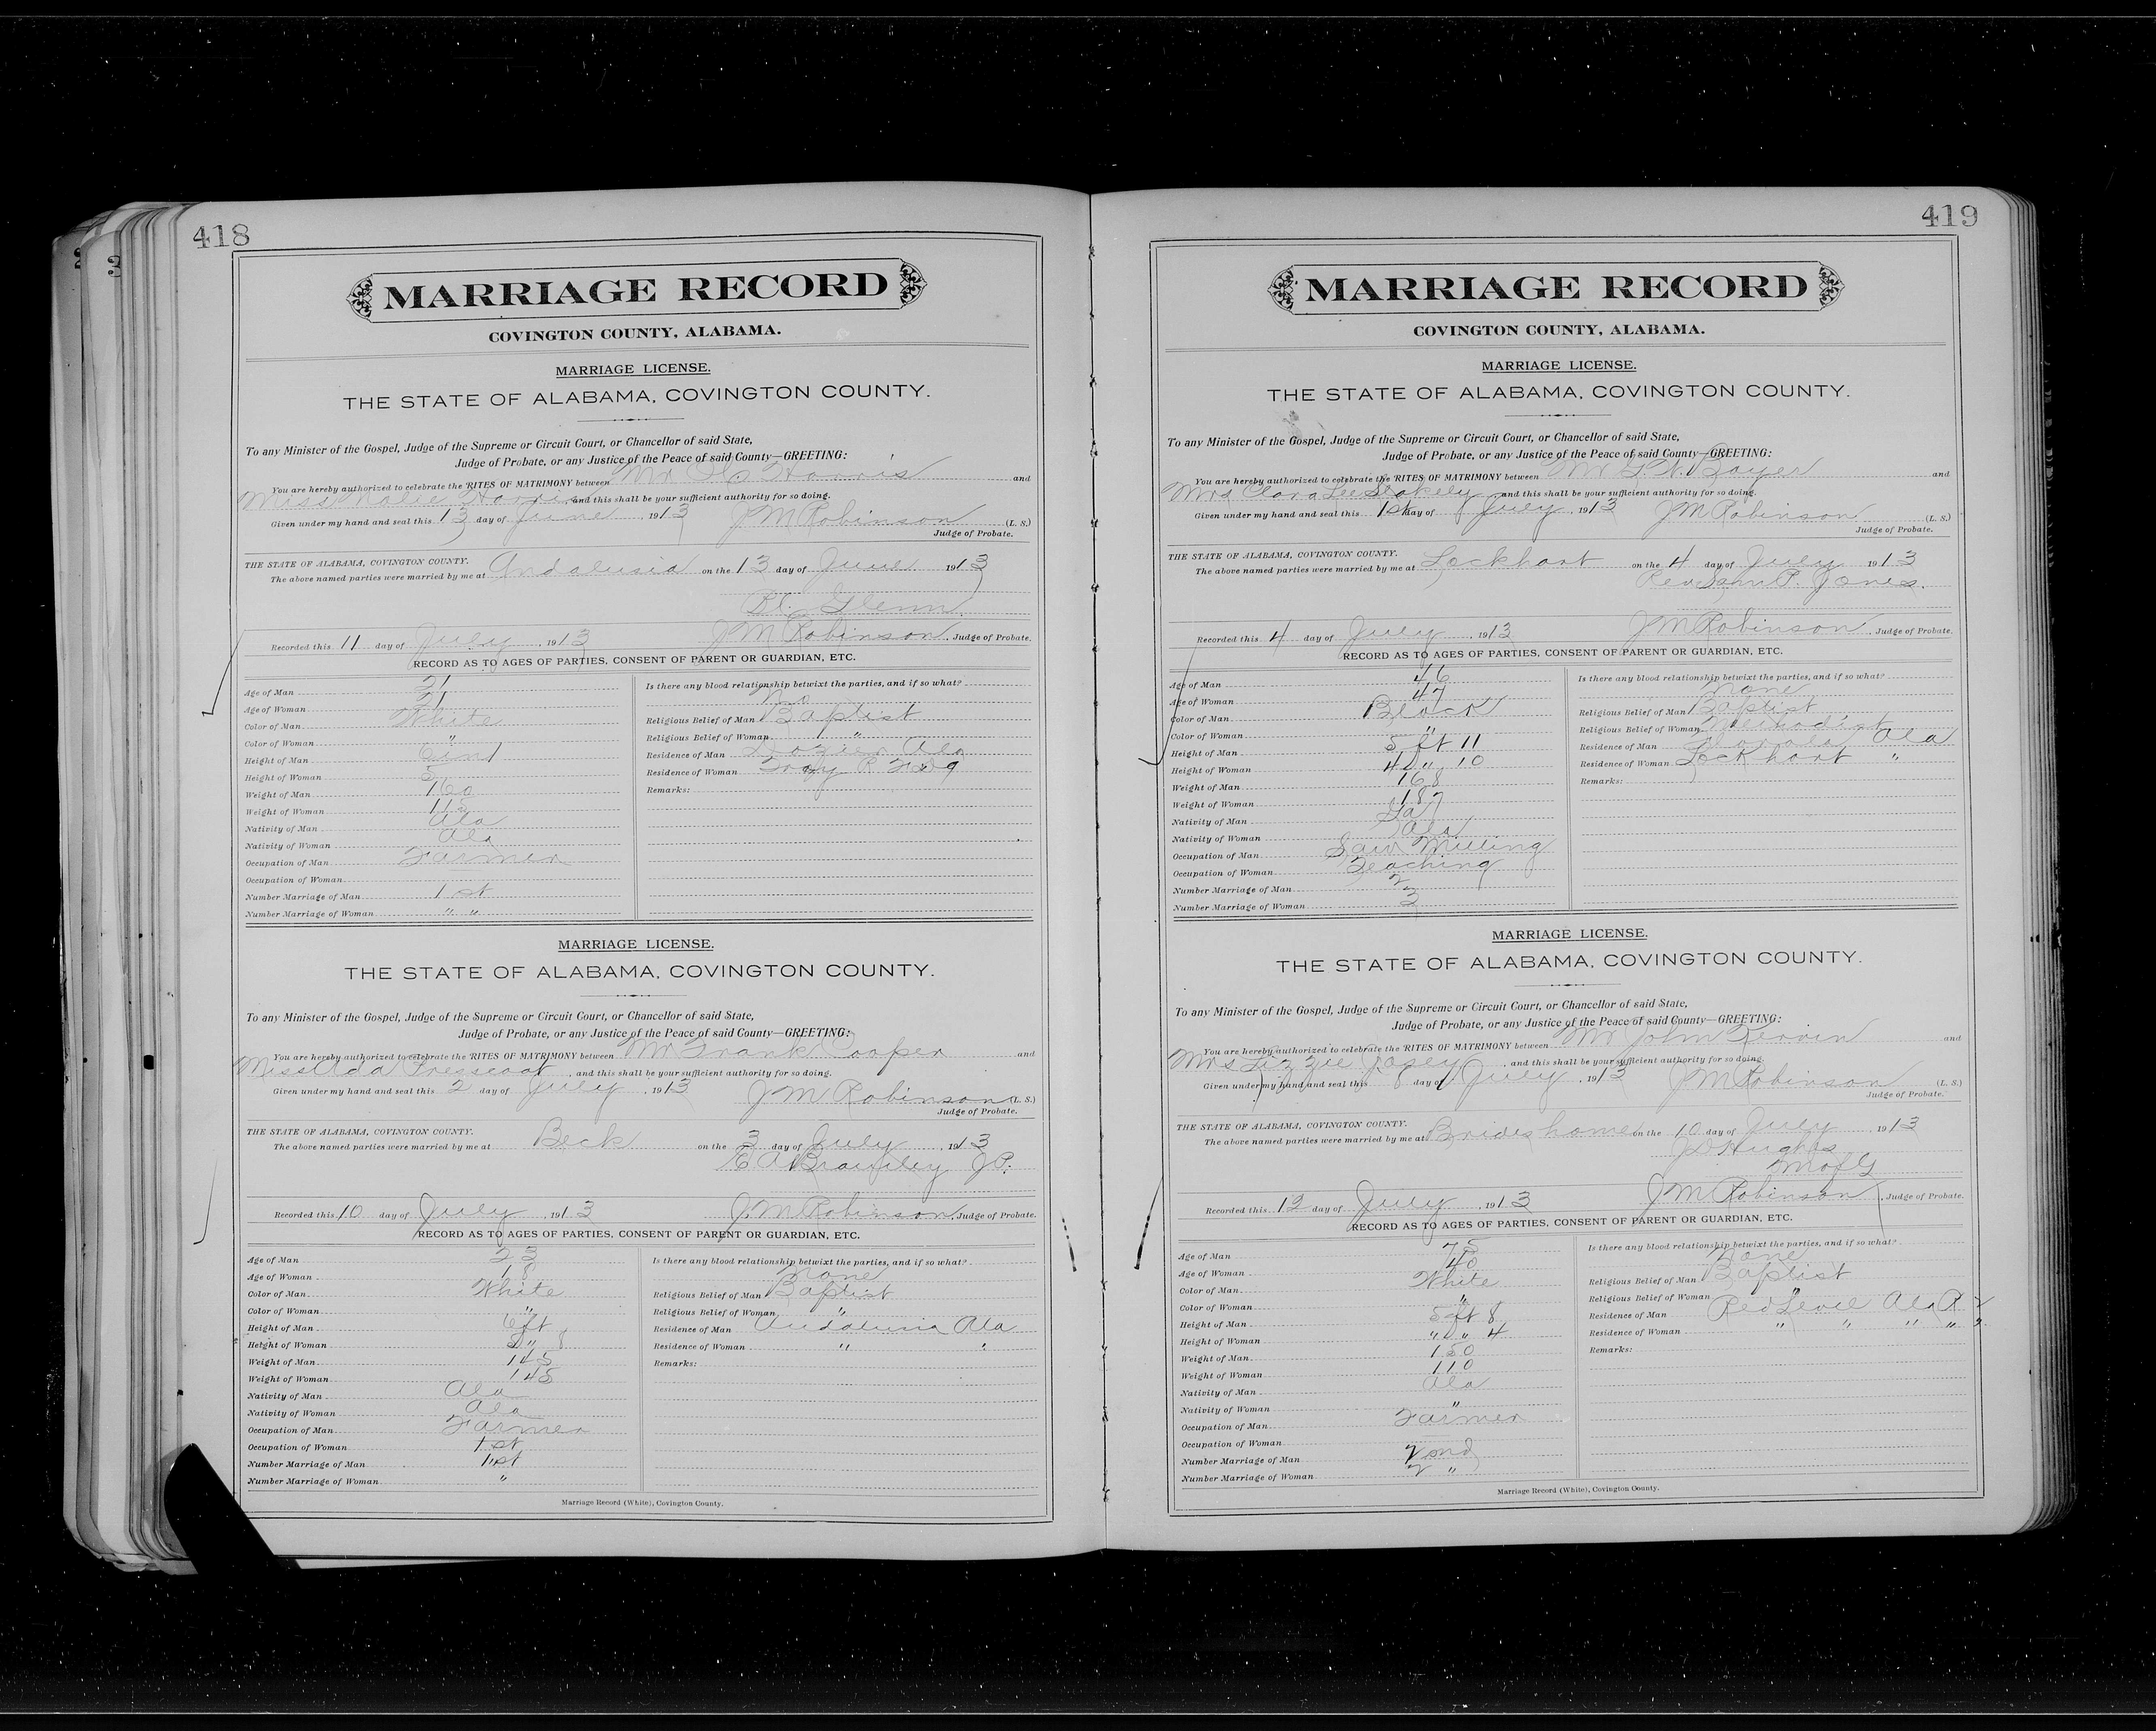 418
MARRIAGE RECORD
COVINGTON COUNTY, ALABAMA.
MARRIAGE LICENSE.
THE STATE OF ALABAMA, COVINGTON COUNTY.
To any Minister of the Gospel, Judge of the Supreme or Circuit Court, or Chancellor of said State,
Judge of Probate, or any Justice of the Peace of said County—GREETING:
You are hereby authorized to celebrate the RITES OF MATRIMONY between Mr Harris and
Miss Harris and this shall be your sufficient authority for so doing.
Given under my hand and seal this 13 day of June, 1913 J M Robinson (L. S.)
Judge of Probate.
THE STATE OF ALABAMA, COVINGTON COUNTY.
The above named parties were married by me at Andalusia on the 13 day of June 1913
Glenn
Recorded this 11 day of July, 1913 J M Robinson, Judge of Probate.
RECORD AS TO AGES OF PARTIES, CONSENT OF PARENT OR GUARDIAN, ETC.
Age of Man 21
Age of Woman 21
Color of Man White
Color of Woman "
Height of Man
Height of Woman 5
Weight of Man 160
Weight of Woman 115
Nativity of Man Ala
Nativity of Woman Ala
Occupation of Man Farmer
Occupation of Woman
Number Marriage of Man 1st
Number Marriage of Woman " "
Is there any blood relationship betwixt the parties, and if so what?
No
Religious Belief of Man Baptist
Religious Belief of Woman "
Residence of Man Dozier Ala
Residence of Woman
Remarks:
MARRIAGE LICENSE.
THE STATE OF ALABAMA, COVINGTON COUNTY.
To any Minister of the Gospel, Judge of the Supreme or Circuit Court, or Chancellor of said State,
Judge of Probate, or any Justice of the Peace of said County—GREETING:
You are hereby authorized to celebrate the RITES OF MATRIMONY between Mr Frank Cooper and
Miss Ada Presscoat, and this shall be your sufficient authority for so doing.
Given under my hand and seal this 2 day of July, 1913 J M Robinson (L. S.)
Judge of Probate.
THE STATE OF ALABAMA, COVINGTON COUNTY.
The above named parties were married by me at Beck on the 3 day of July, 1913
E A Brantley J P.
Recorded this 10 day of July, 1913 J M Robinson, Judge of Probate.
RECORD AS TO AGES OF PARTIES, CONSENT OF PARENT OR GUARDIAN, ETC.
Age of Man 23
Age of Woman 18
Color of Man White
Color of Woman "
Height of Man 6ft
Height of Woman 5 " 8
Weight of Man 145
Weight of Woman 145
Nativity of Man Ala
Nativity of Woman Ala
Occupation of Man Farmer
Occupation of Woman 1st
Number Marriage of Man 1st
Number Marriage of Woman "
Is there any blood relationship betwixt the parties, and if so what?
None
Religious Belief of Man Baptist
Religious Belief of Woman "
Residence of Man Andalusia Ala
Residence of Woman " "
Remarks:
Marriage Record (White), Covington County.
419
MARRIAGE RECORD
COVINGTON COUNTY, ALABAMA.
MARRIAGE LICENSE.
THE STATE OF ALABAMA, COVINGTON COUNTY.
To any Minister of the Gospel, Judge of the Supreme or Circuit Court, or Chancellor of said State,
Judge of Probate, or any Justice of the Peace of said County—GREETING:
You are hereby authorized to celebrate the RITES OF MATRIMONY between Mr G. W. Boyer and
Mrs Clara Lee Stokely and this shall be your sufficient authority for so doing.
Given under my hand and seal this 1st day of July, 1913 J M Robinson (L. S.)
Judge of Probate.
THE STATE OF ALABAMA, COVINGTON COUNTY.
The above named parties were married by me at Lockhart on the 4 day of July 1913
Rev John P. Jones.
Recorded this 4 day of July, 1913 J M Robinson, Judge of Probate.
RECORD AS TO AGES OF PARTIES, CONSENT OF PARENT OR GUARDIAN, ETC.
Age of Man 46
Age of Woman 47
Color of Man Black
Color of Woman "
Height of Man 5 ft 11
Height of Woman 4 " 10
Weight of Man 168
Weight of Woman 187
Nativity of Man Ga
Nativity of Woman Ala
Occupation of Man Saw Milling
Occupation of Woman Teaching
Number Marriage of Man 2
Number Marriage of Woman 3
Is there any blood relationship betwixt the parties, and if so what?
None
Religious Belief of Man Baptist
Religious Belief of Woman Methodist
Residence of Man Florala Ala
Residence of Woman Lockhart "
Remarks:
MARRIAGE LICENSE.
THE STATE OF ALABAMA, COVINGTON COUNTY.
To any Minister of the Gospel, Judge of the Supreme or Circuit Court, or Chancellor of said State,
Judge of Probate, or any Justice of the Peace of said County—GREETING:
You are hereby authorized to celebrate the RITES OF MATRIMONY between Mr John Kervin and
Mrs Lizzie Josey, and this shall be your sufficient authority for so doing.
Given under my hand and seal this 8 day of July, 1913 J M Robinson (L. S.)
Judge of Probate.
THE STATE OF ALABAMA, COVINGTON COUNTY.
The above named parties were married by me at Brides home on the 10 day of July 1913
J D Hughes
M of G
Recorded this 12 day of July, 1913 J M Robinson, Judge of Probate.
RECORD AS TO AGES OF PARTIES, CONSENT OF PARENT OR GUARDIAN, ETC.
Age of Man 75
Age of Woman 40
Color of Man White
Color of Woman "
Height of Man 5 ft 8
Height of Woman " " 4
Weight of Man 150
Weight of Woman 110
Nativity of Man Ala
Nativity of Woman "
Occupation of Man Farmer
Occupation of Woman
Number Marriage of Man 2ond
Number Marriage of Woman 2 "
Is there any blood relationship betwixt the parties, and if so what?
None
Religious Belief of Man Baptist
Religious Belief of Woman "
Residence of Man Red Level Ala R 2
Residence of Woman " " " " 2
Remarks:
Marriage Record (White), Covington County.